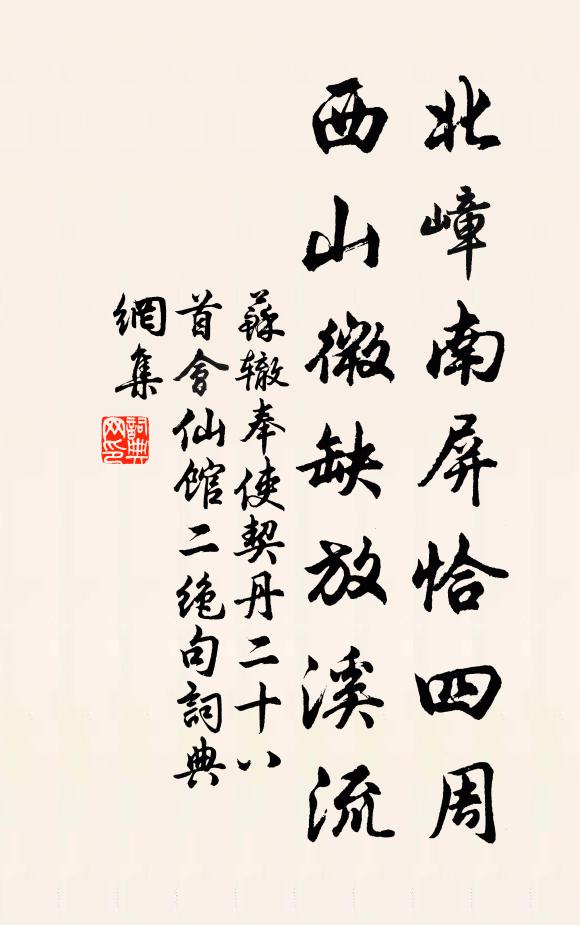 北嶂南屏恰四周
西山微缺放溪流
蘇辙奉使契丹二十八
首会仙馆二绝句詞典
網集
詞典网印